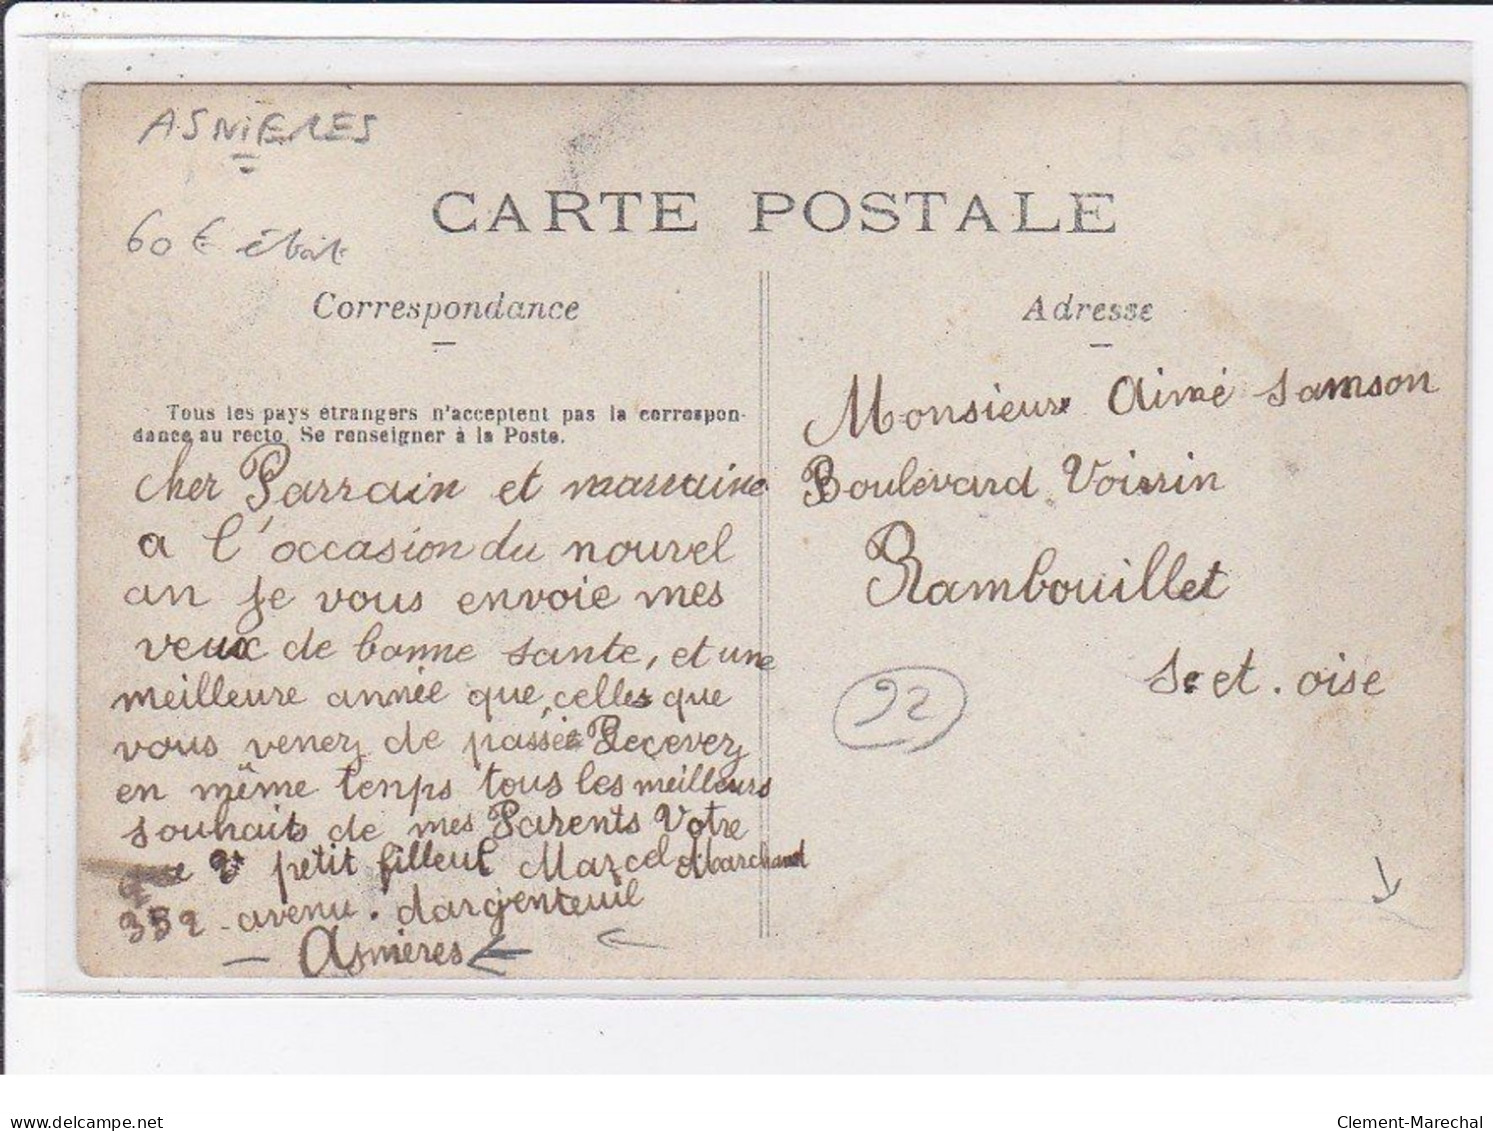 ASNIERES
60 € était
CARTE POSTALE
Correspondance
Tous les pays étrangers n'acceptent pas la correspon-
dance au recto. Se renseigner à la Poste.
cher Parrain et marraine
a l'occasion du nouvel
an je vous envoie mes
veux de bonne sante, et une
meilleure année que celles que
vous venez de passée Recevez
en même temps tous les meilleurs
souhaits de mes Parents Votre
petit filleul Marcel Marchand
352 avenu. dargenteuil
Asnieres
Adresse
Monsieur Aimé Samson
Boulevard Voirin
Rambouillet
S. et. oise
92
delcampe.net
Clement-Marechal